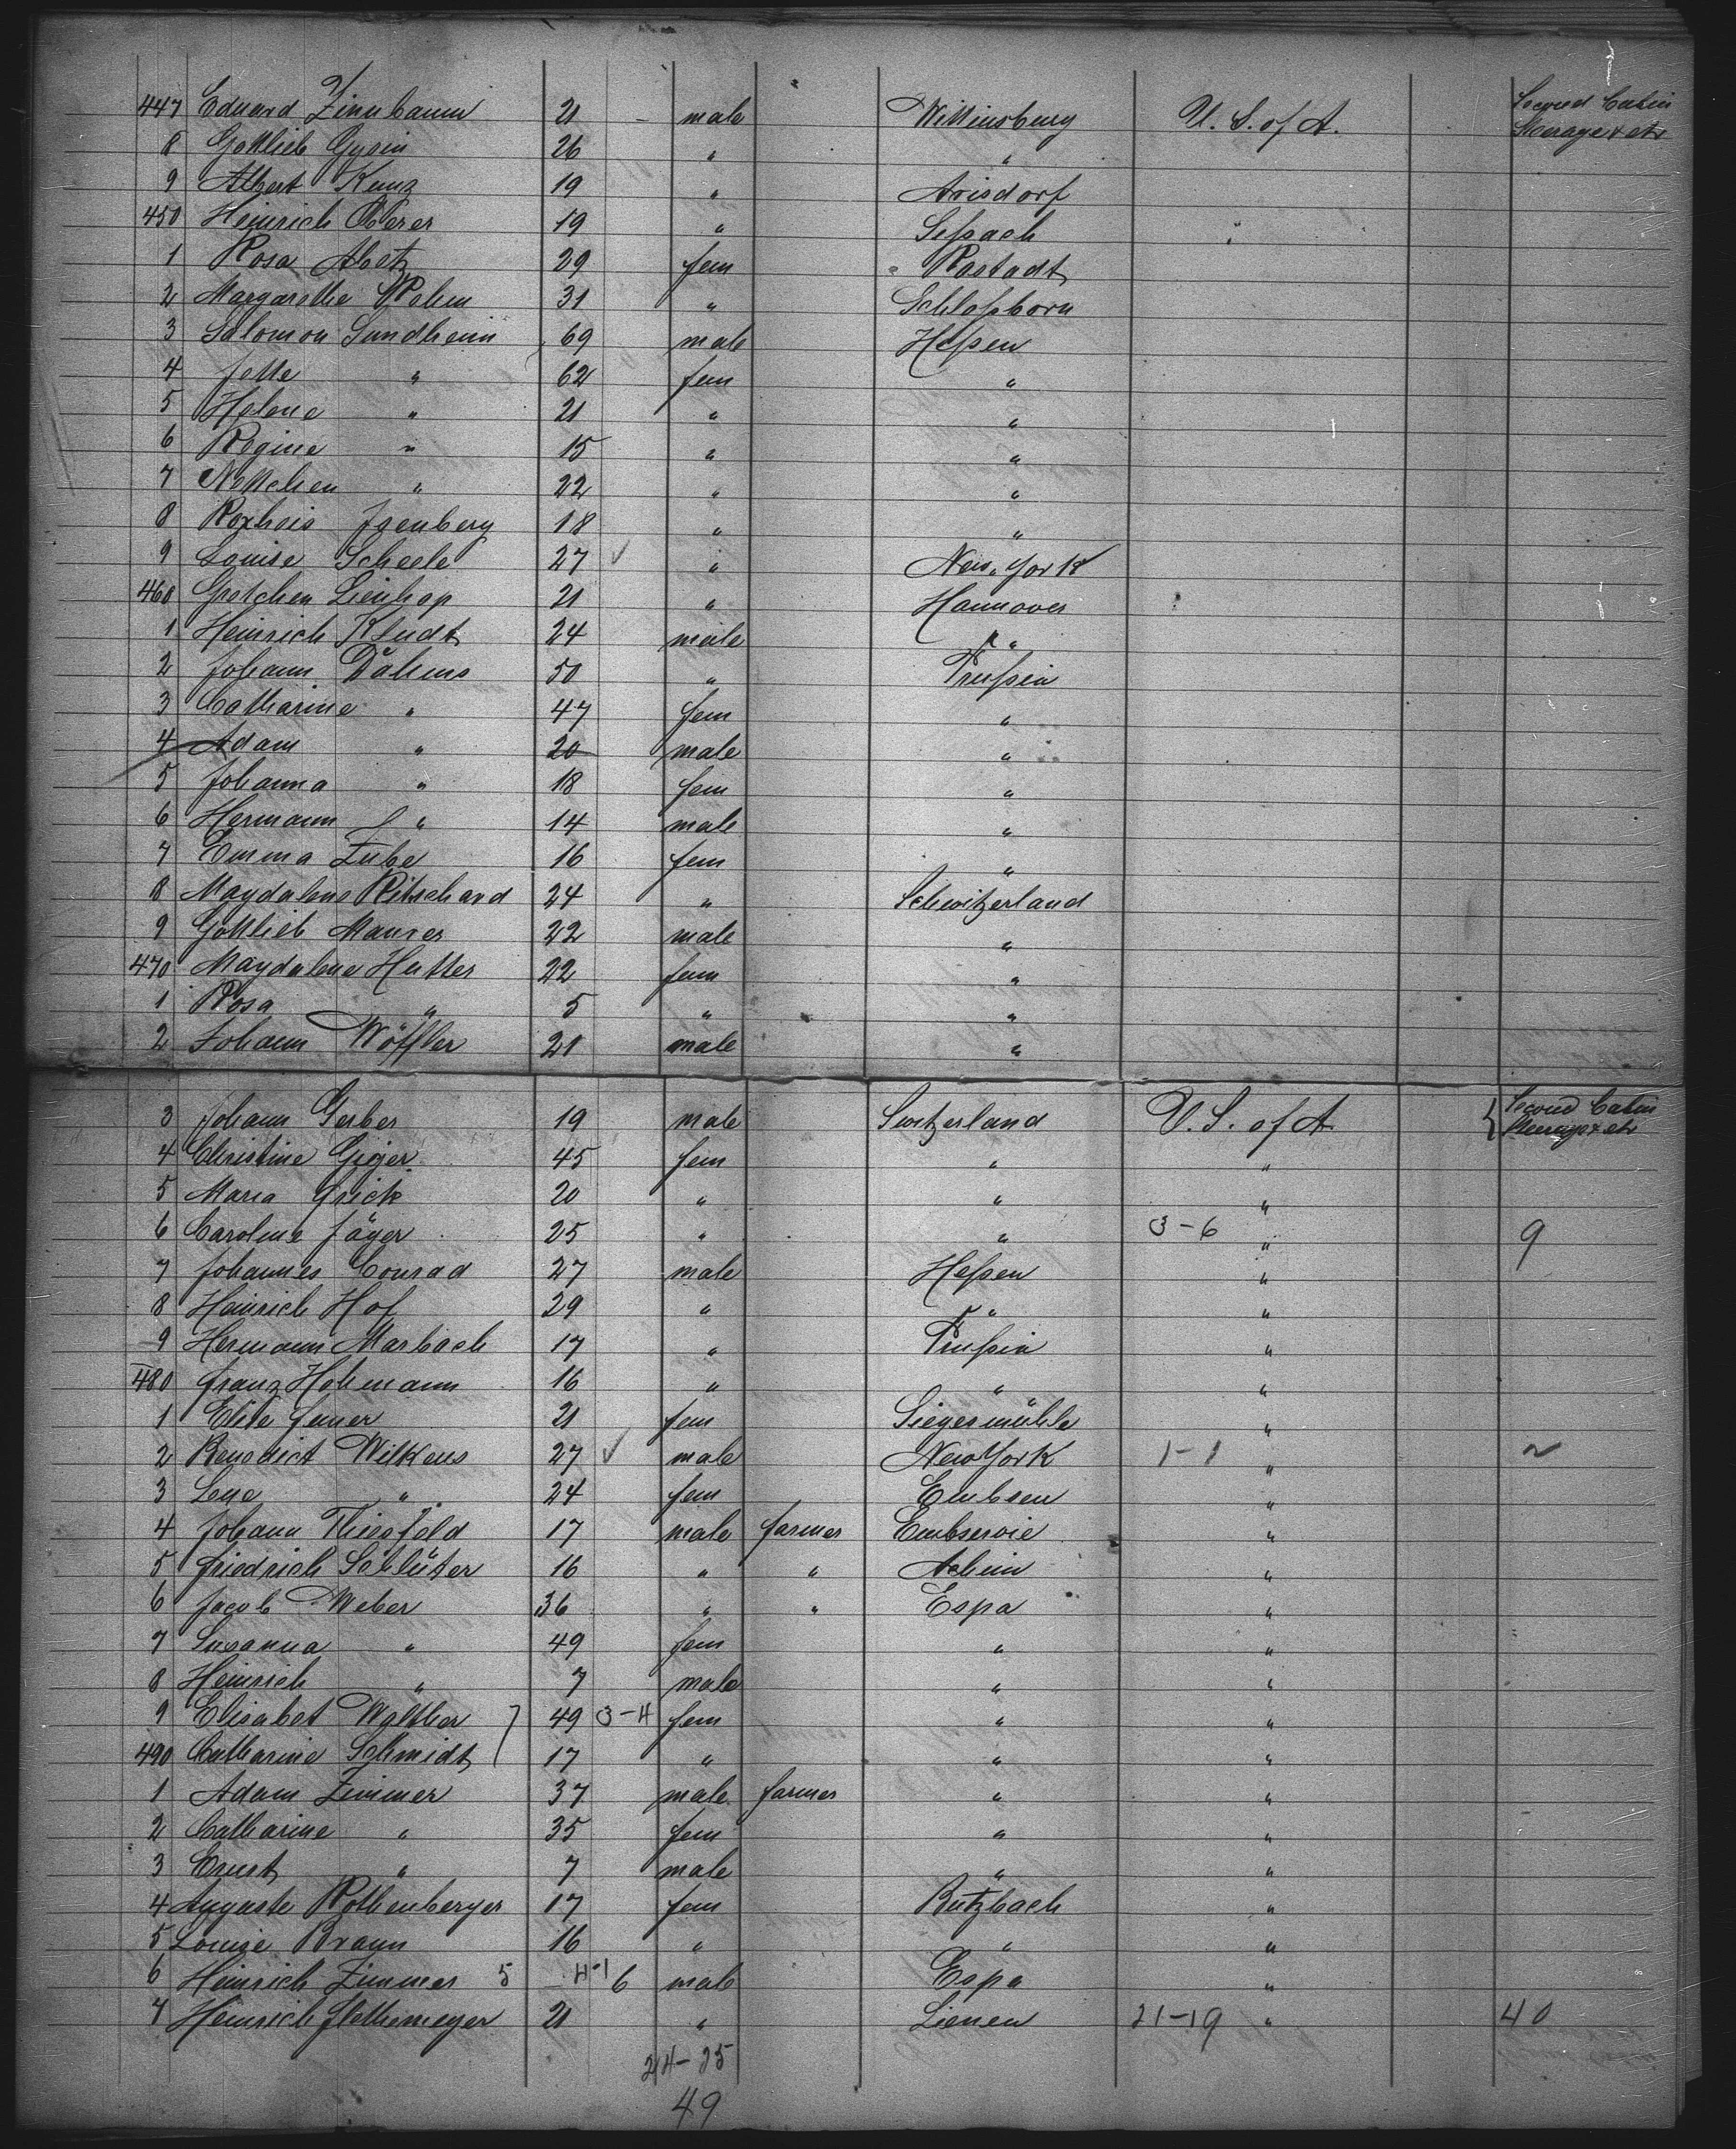 447 Eduard Zinnbaum 21 - male Willinsburg U. S. of A. Second Cabin
8 Gottlieb Gysin 26 " " Steerage etc
9 Albert Kunz 19 " Arisdorf
450 Heinrich Oberer 19 " Sißach "
1 Rosa Abetz 29 fem Rastadt
2 Margarethe 31 " Schloßborn
3 Salomon Sundheim 69 male Heßen
4 Jette " 62 fem "
5 Helene " 21 " "
6 Regine " 15 " "
7 Nettchen " 22 " "
8 Isenberg 18 " "
9 Louise Scheele 27 ✓ " New York
460 Gretchen Lienhop 21 " Hannover
1 Heinrich Kludt 24 male "
2 Johann Dahms 50 " Prußia
3 Catharine " 47 fem "
4 Adam " 20 male "
5 Johanna " 18 fem "
6 Hermann " 14 male "
7 Emma Zube 16 fem "
8 Magdalene Ritschard 24 " Schwitzerland
9 Gottlieb Maurer 22 male "
470 Magdalena Hutter 22 fem "
1 Rosa " 5 " "
2 Johann Wöffler 21 male "
3 Johann Gerber 19 male Switzerland U. S. of A. Second Cabin
4 Christine Geiger 45 fem " " Steerage etc
5 Maria Frick 20 " " "
6 Caroline Jäger 25 " " 3-6 " 9
7 Johannes Conrad 27 male Heßen "
8 Heinrich Hof 29 " " "
9 Hermann Marbach 17 " Prußia "
480 Franz Hohmann 16 " " "
1 Elise 21 fem Siegesmühle "
2 Benedict Wilkens 27 ✓ male New York 1-1 " 2
3 Lene " 24 fem Embsen "
4 Johann Thiesfeld 17 male farmer "
5 Friedrich Schlüter 16 " " Achim "
6 Jacob Weber 36 " " Espa "
7 Susanna " 49 fem " "
8 Heinrich " 7 male " "
9 Elisabet Walther 49 3-4 fem " "
490 Catharine Schmidt 17 " " "
1 Adam Zimmer 37 male farmer " "
2 Catharine " 35 fem " "
3 Ernst " 7 male " "
4 Auguste Rothenberger 17 fem Butzbach "
5 Louise Braun 16 " " "
6 Heinrich Zimmer 5 6 male Espa "
7 Heinrich 21 " Lienen 21-19 " 40
24-25
49